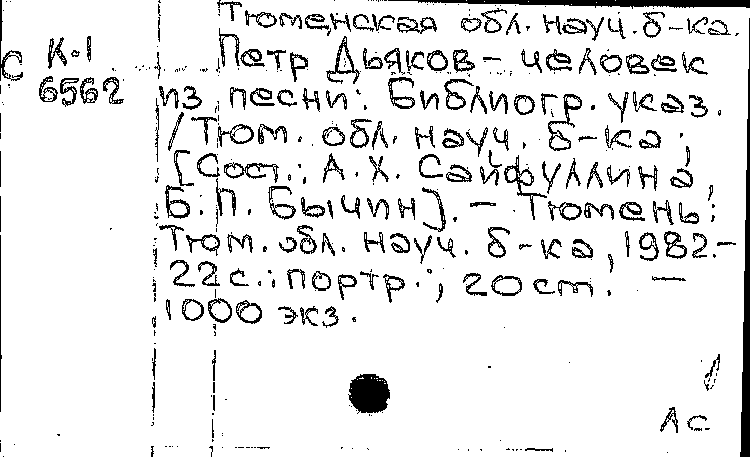 Тюменская обл. науч. б-ка.
С К-1
6562
Петр Дьяков - человек
из песни: Библиогр. указ.
/ Тюм. обл. науч. б-ка ;
[Сост.: А. Х. Сайфуллина,
Б. П. Бычин]. - Тюмень:
Тюм. обл. науч. б-ка, 1982.-
22 с.: портр.; 20 ст. —
1000 экз.
Ас